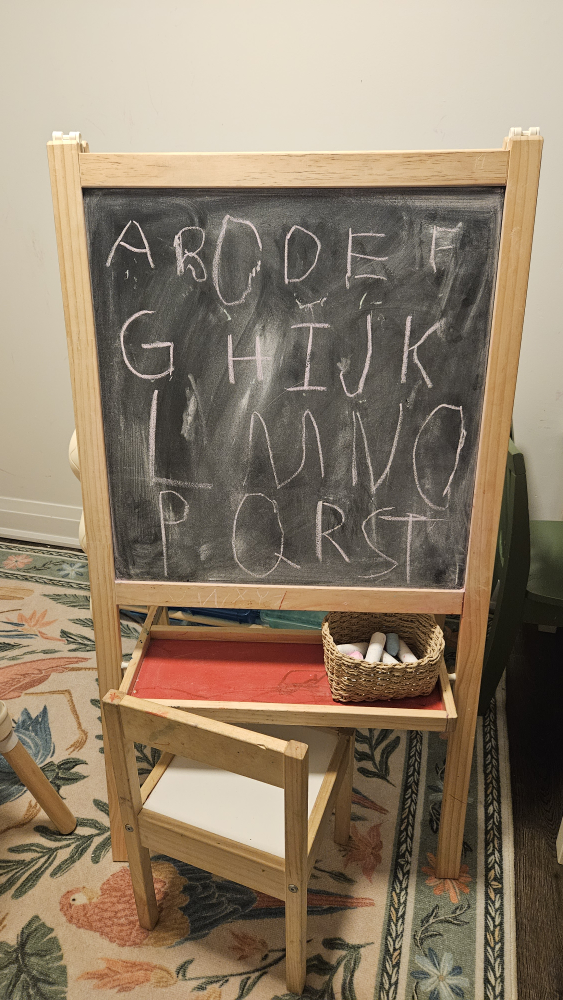 A B O D E F
G H I J K
L M N O
P Q R S T